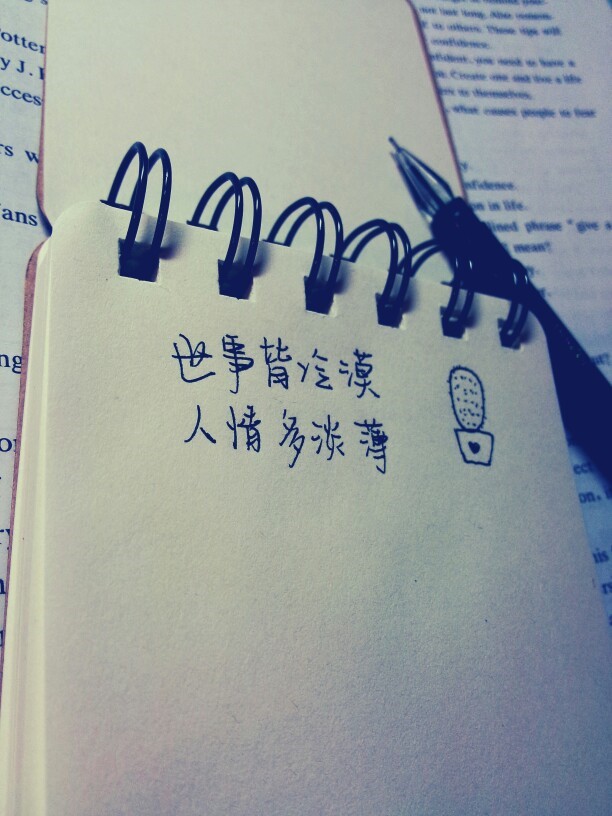 世事皆冷漠
人情多淡薄
otter
y J.
cces
rs w
ans
ng
not last long. Also
to others. These tips will
confidence.
you need to have a
Create one and live a life
to themselves.
what causes people to fear
y.
nfidence.
on in life.
ined phrase "give a
mean?